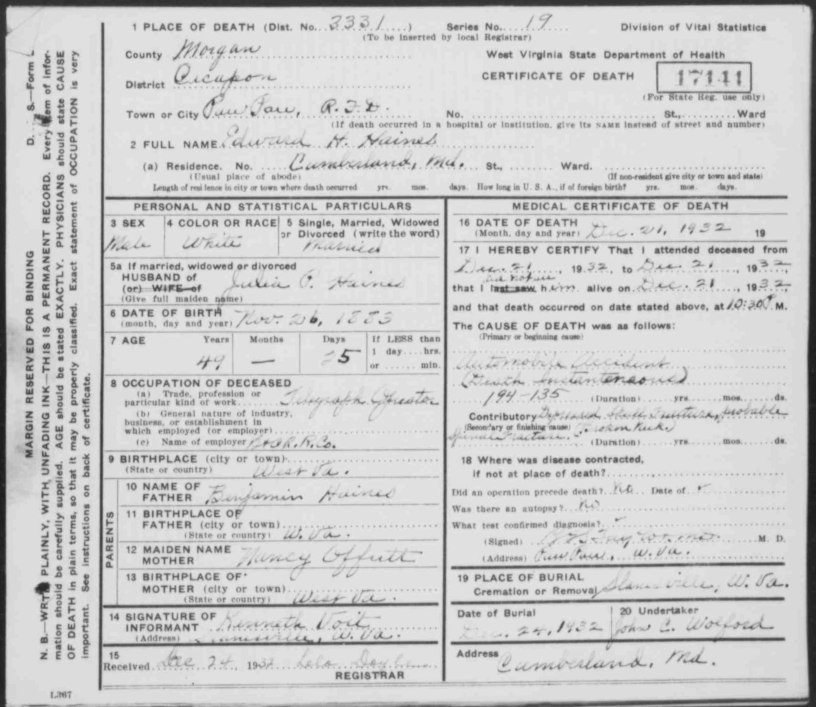 1 PLACE OF DEATH (Dist. No. 3331) Series No. 19 Division of Vital Statistics
(To be inserted by local Registrar)
County Morgan West Virginia State Department of Health
District Cacapon CERTIFICATE OF DEATH 17141
(For State Reg. use only)
Town or City Paw Paw, R.F.D. No. St., Ward
(If death occurred in a hospital or institution, give its NAME instead of street and number)
2 FULL NAME Edward H. Haines
(a) Residence. No. Cumberland, Md. St., Ward.
(Usual place of abode) (If non-resident give city or town and state)
Length of residence in city or town where death occurred yrs. mos. days. How long in U. S. A., if of foreign birth? yrs. mos. days.
PERSONAL AND STATISTICAL PARTICULARS
3 SEX 4 COLOR OR RACE 5 Single, Married, Widowed
or Divorced (write the word)
Male White Married
5a If married, widowed or divorced
HUSBAND of Julia P. Haines
(or) WIFE of
(Give full maiden name)
6 DATE OF BIRTH
(month, day and year) Nov. 26, 1883
7 AGE Years Months Days If LESS than
1 day....hrs.
49 — 25 or ...... min.
8 OCCUPATION OF DECEASED
(a) Trade, profession or
particular kind of work Telegraph Operator
(b) General nature of industry,
business, or establishment in
which employed (or employer)
(c) Name of employer B&O R.R. Co.
9 BIRTHPLACE (city or town)
(State or country) West Va.
PARENTS
10 NAME OF
FATHER Benjamin Haines
11 BIRTHPLACE OF
FATHER (city or town)
(State or country) W. Va.
12 MAIDEN NAME
MOTHER Nancy Offutt
13 BIRTHPLACE OF
MOTHER (city or town)
(State or country) West Va.
14 SIGNATURE OF
INFORMANT Kenneth Voit
(Address) W. Va.
15
Received Dec 24, 1932
REGISTRAR
L367
MEDICAL CERTIFICATE OF DEATH
16 DATE OF DEATH
(Month, day and year) Dec. 21, 1932 19
17 I HEREBY CERTIFY That I attended deceased from
Dec. 21, 1932, to Dec. 21, 1932,
that I last saw him alive on Dec. 21, 1932,
and that death occurred on date stated above, at 10:30 P. M.
The CAUSE OF DEATH was as follows:
(Primary or beginning cause)
Automobile Accident
(Death Instantaneous)
194-135 (Duration) yrs. mos. ds.
Contributory Depressed Skull Fracture, probable
(Secondary or finishing cause)
Spinal Fracture. (Broken Neck.)
(Duration) yrs. mos. ds.
18 Where was disease contracted,
if not at place of death?
Did an operation precede death? No Date of
Was there an autopsy? No
What test confirmed diagnosis?
(Signed) M. D.
(Address) Paw Paw, W. Va.
19 PLACE OF BURIAL
Cremation or Removal Slanesville, W. Va.
Date of Burial 20 Undertaker
Dec. 24, 1932 John C. Wolford
Address
Cumberland, Md.
MARGIN RESERVED FOR BINDING
N. B.—WRITE PLAINLY, WITH UNFADING INK—THIS IS A PERMANENT RECORD. Every item of infor-
mation should be carefully supplied. AGE should be stated EXACTLY. PHYSICIANS should state CAUSE
OF DEATH in plain terms, so that it may be properly classified. Exact statement of OCCUPATION is very
important. See instructions on back of certificate.